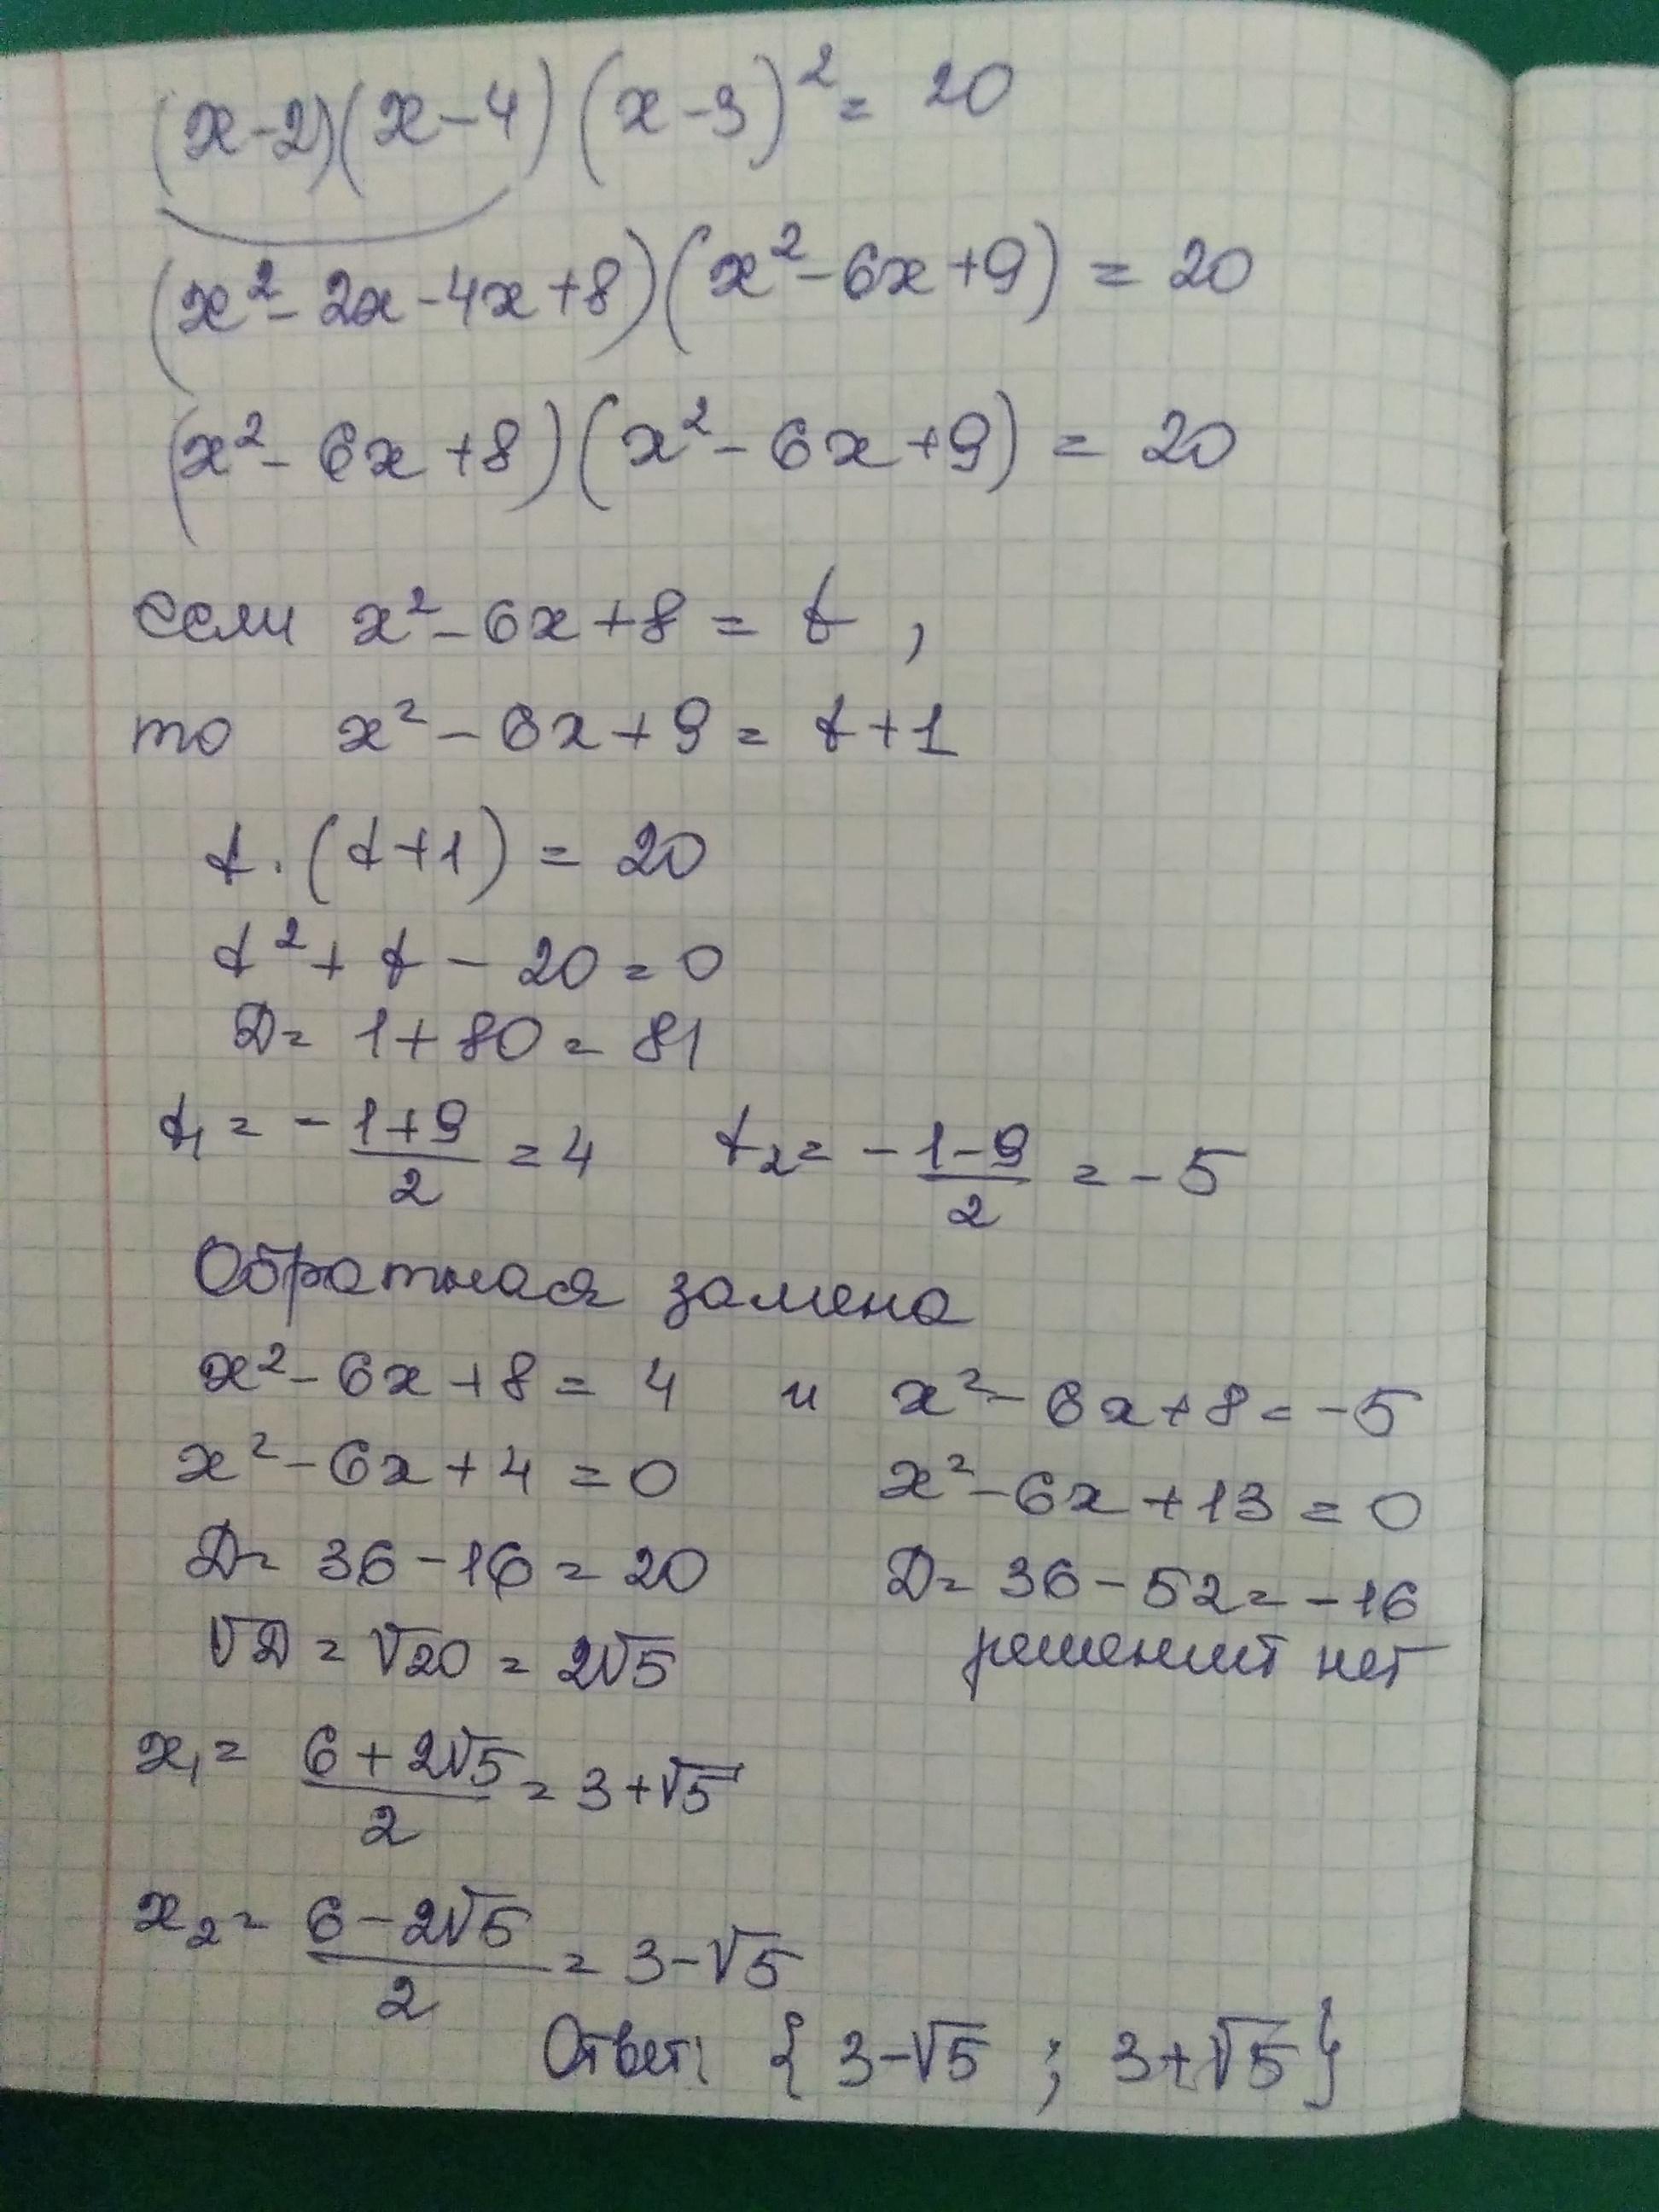 (x-2)(x-4)(x-3)² = 20
(x²-2x-4x+8)(x²-6x+9) = 20
(x²-6x+8)(x²-6x+9) = 20
если x²-6x+8 = t,
то x²-6x+9 = t+1
t·(t+1) = 20
t²+t-20=0
D= 1+80=81
t₁= -1+9/2 =4 t₂= -1-9/2 = -5
Обратная замена
x²-6x+8= 4 и x²-6x+8=-5
x²-6x+4=0 x²-6x+13=0
D= 36-16=20 D= 36-52=-16
√D=√20=2√5 решений нет
x₁= 6+2√5/2 = 3+√5
x₂= 6-2√5/2 = 3-√5
Ответ: {3-√5 ; 3+√5}